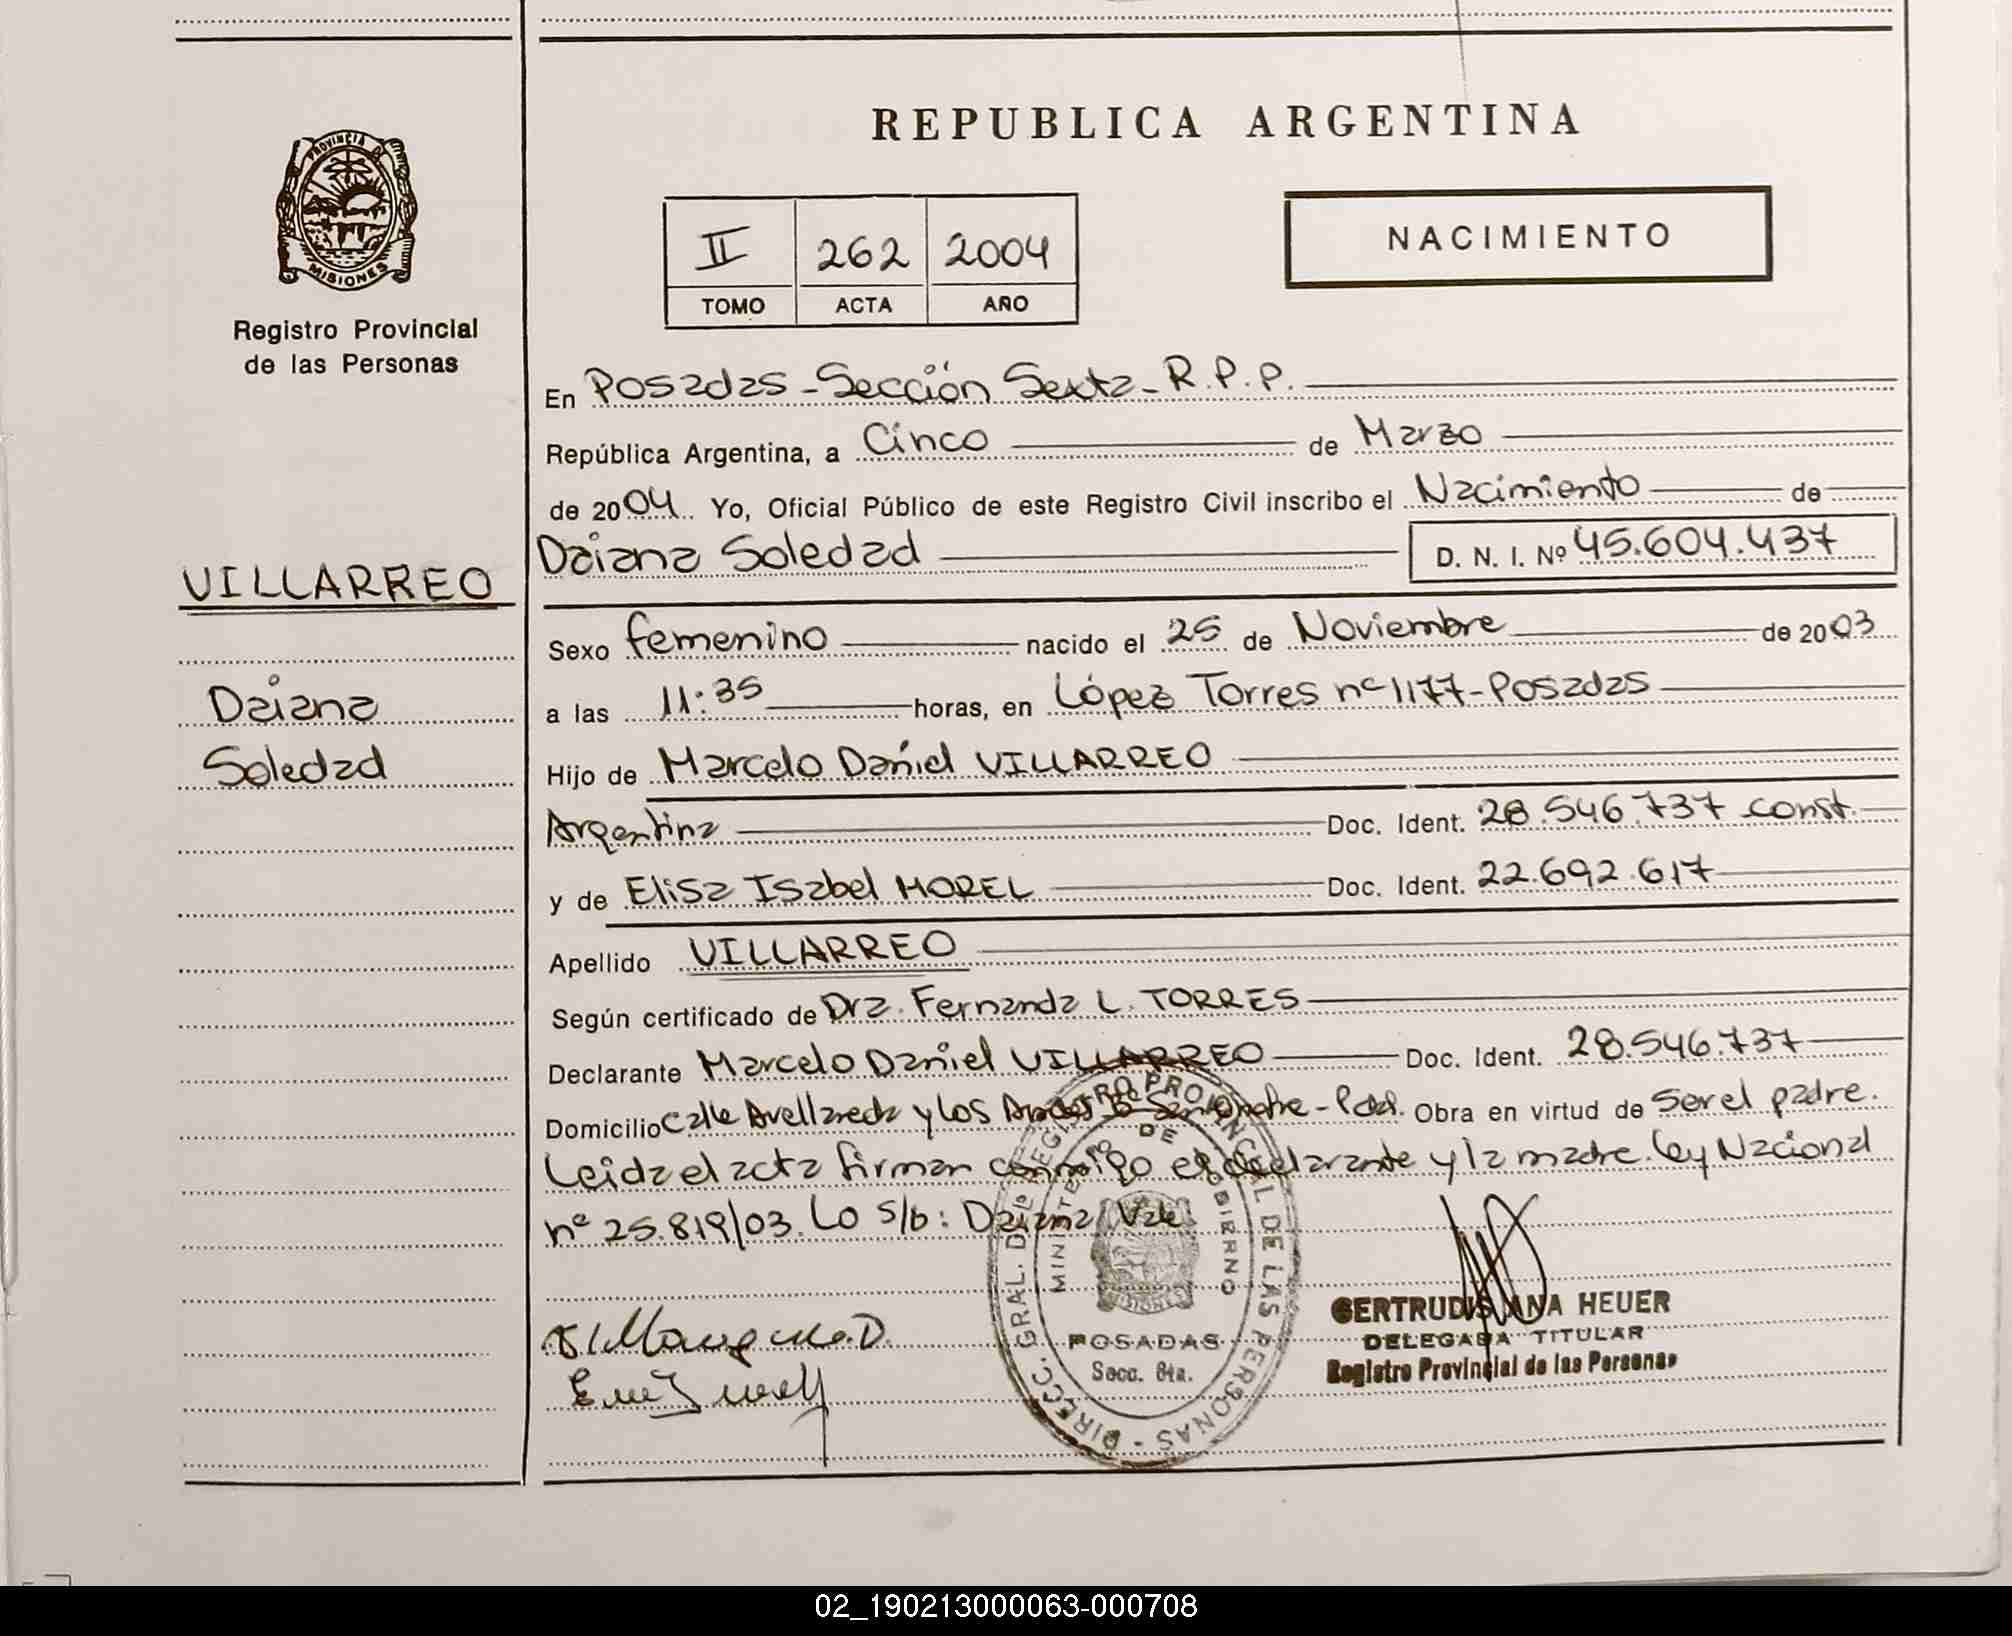 REPUBLICA ARGENTINA
PROVINCIA DE
MISIONES
Registro Provincial
de las Personas
II 262 2004
TOMO ACTA AÑO
NACIMIENTO
En Posadas - Sección Sexta - R.P.P.
República Argentina, a Cinco de Marzo
de 2004 Yo, Oficial Público de este Registro Civil inscribo el Nacimiento de
VILLARREO
Daiana Soledad D. N. I. Nº 45.604.437
Sexo femenino nacido el 25 de Noviembre de 2003
Daiana
Soledad
a las 11:35 horas, en López Torres nº 1177 - Posadas
Hijo de Marcelo Daniel VILLARREO
Argentina Doc. Ident. 28.546.737 const.
y de Elisa Isabel MOREL Doc. Ident. 22.692.617
Apellido VILLARREO
Según certificado de Dra. Fernanda L. TORRES
Declarante Marcelo Daniel VILLARREO Doc. Ident. 28.546.737
Domicilio calle Avellaneda y Los Andes Bº San Onofre - Pdas. Obra en virtud de Ser el padre.
Leida el acta firman conmigo el declarante y la madre. Ley Nacional
nº 25.819/03. Lo s/b: Daiana. Vale.
DIRECC. GRAL. DEL REGISTRO PROVINCIAL DE LAS PERSONAS
MINISTERIO DE GOBIERNO
MISIONES
POSADAS
Secc. 6ta.
GERTRUDIS ANA HEUER
DELEGADA TITULAR
Registro Provincial de las Personas
02_190213000063-000708